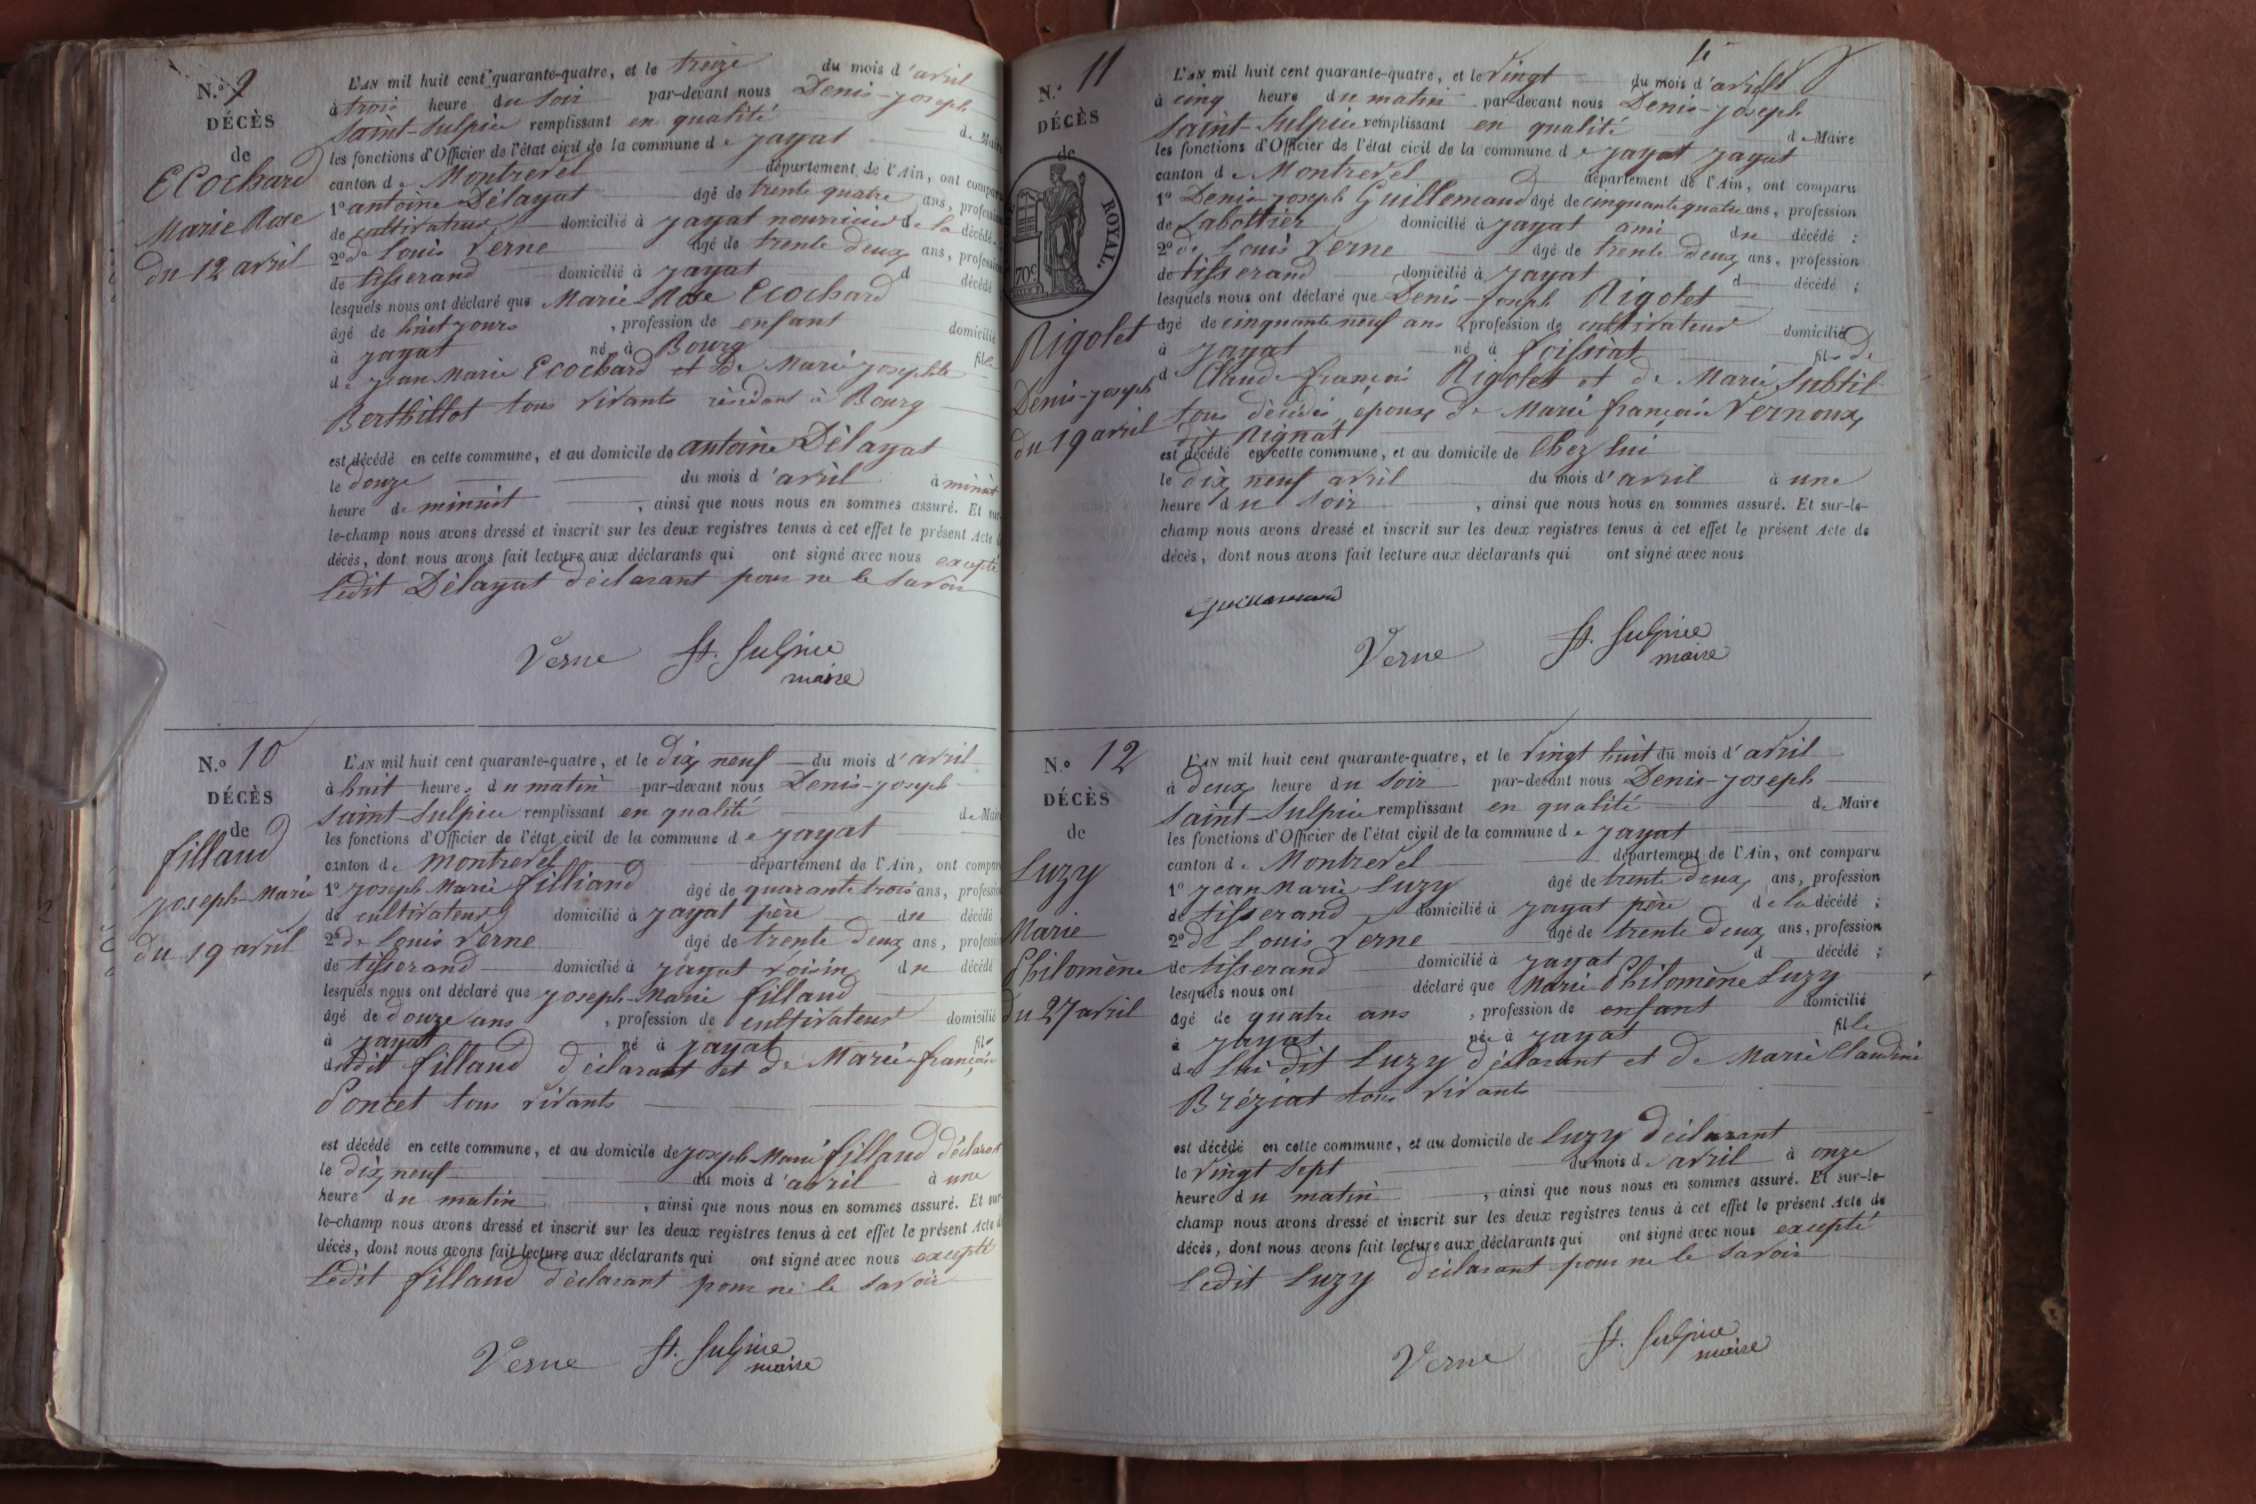 N.º 9
DÉCÈS
de
Ecochard
Marie Rose
du 12 avril
L'AN mil huit cent quarante-quatre, et le treize du mois d'avril
à trois heure du soir par-devant nous Denis-joseph
Saint-Sulpice remplissant en qualité de Maire
les fonctions d'Officier de l'état civil de la commune de jayat
canton de Montrevel département de l'Ain, ont comparu
1º antoine Délayat âgé de trente quatre ans, profession
de cultivateur domicilié à jayat nourricier de la décédé
2º de Louis Verne âgé de trente deux ans, profession
de tisserand domicilié à jayat d décédé
lesquels nous ont déclaré que Marie-Rose Ecochard
âgé de huit jours, profession de enfant domicilié
à jayat né à Bourg fille
de jean Marie Ecochard et de Marie josephte
Berthillot tous vivants résidant à Bourg
est décédé en cette commune, et au domicile de antoine Délayat
le douze du mois d'avril à minuit
heure de minuit, ainsi que nous nous en sommes assuré. Et sur-
le-champ nous avons dressé et inscrit sur les deux registres tenus à cet effet le présent Acte de
décès, dont nous avons fait lecture aux déclarants qui ont signé avec nous excepté
ledit Délayat déclarant pour ne le savoir
Verne St. Sulpice
maire
N.º 10
DÉCÈS
de
filland
joseph-Marie
du 19 avril
L'AN mil huit cent quarante-quatre, et le dix neuf du mois d'avril
à huit heure, du matin par-devant nous Denis-joseph
Saint-Sulpice remplissant en qualité de Maire
les fonctions d'Officier de l'état civil de la commune de jayat
canton de Montrevel département de l'Ain, ont comparu
1º joseph Marie filliand âgé de quarante trois ans, profession
de cultivateur domicilié à jayat père du décédé
2º de Louis Verne âgé de trente deux ans, profession
de tisserand domicilié à jayat voisin du décédé
lesquels nous ont déclaré que joseph-Marie filland
âgé de douze ans, profession de cultivateur domicilié
à jayat né à jayat fils
dudit filland déclarant et de Marie-françoise
Poncet tous vivants
est décédé en cette commune, et au domicile de joseph-Marie filland déclarant
le dix neuf du mois d'avril à une
heure du matin, ainsi que nous nous en sommes assuré. Et sur-
le-champ nous avons dressé et inscrit sur les deux registres tenus à cet effet le présent Acte de
décès, dont nous avons fait lecture aux déclarants qui ont signé avec nous excepté
ledit filland déclarant pour ne le savoir
Verne St. Sulpice
maire
N.º 11
DÉCÈS
de
ROYAL.
70c
Rigolet
Denis-joseph
du 19 avril
L'AN mil huit cent quarante-quatre, et le vingt du mois d'avril
à cinq heure du matin par-devant nous Denis-joseph
Saint-Sulpice remplissant en qualité de Maire
les fonctions d'Officier de l'état civil de la commune de jayat jayat
canton de Montrevel département de l'Ain, ont comparu
1º Denis-joseph Guillemaud âgé de cinquante quatre ans, profession
de Sabottier domicilié à jayat ami du décédé ;
2º de Louis Verne âgé de trente deux ans, profession
de tisserand domicilié à jayat d décédé ;
lesquels nous ont déclaré que Denis-Joseph Rigolet
âgé de cinquante neuf ans, profession de cultivateur domicilié
à jayat né à foissiat fils de
d Claude françois Rigolet et de Marie Subtil
tous décédés, époux de Marie françoise Vernoux
dit Rignat
est décédé en cette commune, et au domicile de Chez lui
le dix neuf avril du mois d'avril à une
heure du soir, ainsi que nous nous en sommes assuré. Et sur-le-
champ nous avons dressé et inscrit sur les deux registres tenus à cet effet le présent Acte de
décès, dont nous avons fait lecture aux déclarants qui ont signé avec nous
Verne St. Sulpice
maire
N.º 12
DÉCÈS
de
Luzy
Marie
Philomène
du 27 avril
L'AN mil huit cent quarante-quatre, et le vingt huit du mois d'avril
à deux heure du soir par-devant nous Denis-joseph
Saint-Sulpice remplissant en qualité de Maire
les fonctions d'Officier de l'état civil de la commune de jayat
canton de Montrevel département de l'Ain, ont comparu
1º jean Marie Luzy âgé de trente deux ans, profession
de tisserand domicilié à jayat père de la décédé ;
2º de Louis Verne âgé de trente deux ans, profession
de tisserand domicilié à jayat d décédé ;
lesquels nous ont déclaré que Marie Philomène Luzy
âgé de quatre ans, profession de enfant domicilié
à jayat née à jayat fille
de lui dit Luzy déclarant et de Marie Claudine
Bréziat tous vivants
est décédé en cette commune, et au domicile de Luzy déclarant
le vingt sept du mois de avril à onze
heure du matin, ainsi que nous nous en sommes assuré. Et sur-le-
champ nous avons dressé et inscrit sur les deux registres tenus à cet effet le présent Acte de
décès, dont nous avons fait lecture aux déclarants qui ont signé avec nous excepté
ledit Luzy déclarant pour ne le savoir
Verne St. Sulpice
maire